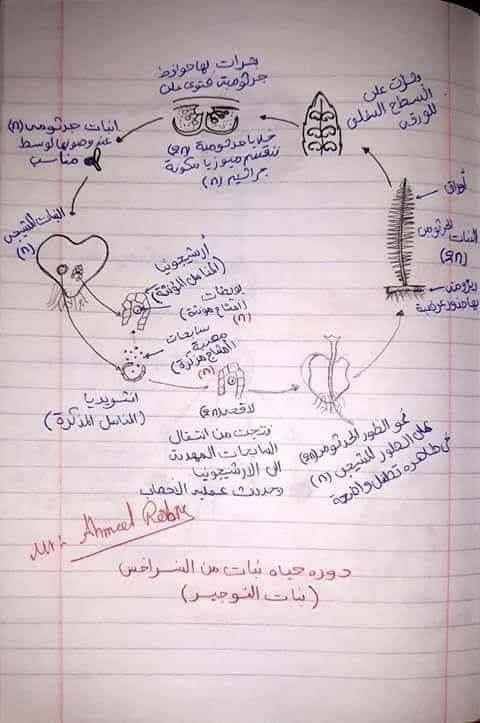 بثرات لها حوافظ
جرثومية تحتوى على
خلايا جرثومية (2n)
تنقسم ميوزيا مكونة
جراثيم (n)
بثرات على
السطح السفلى
للورقة
أوراق
النبات الجرثومى
(2n)
ريزومة
بها جذور عرضية
انبات جرثومه (n)
عند وصولها لوسط
مناسب
النبات المشيجى
(n)
أرشيجونيا
(المناسل المؤنثة)
بويضات
(أمشاج مؤنثة)
(n)
سابحات
مهدبة
(أمشاج مذكرة)
(n)
انثريديا
(المناسل المذكرة)
لاقحه (2n)
نتجت من انتقال
السابحات المهدبة
الى الارشيجونيا
وحدوث عملية الاخصاب
نمو الطور الجرثومى (2n)
على الطور المشيجى (n)
فى ظاهره تطفل واضحة
Mr: Ahmed
دوره حياه نبات من السراخس
(نبات الفوجير)